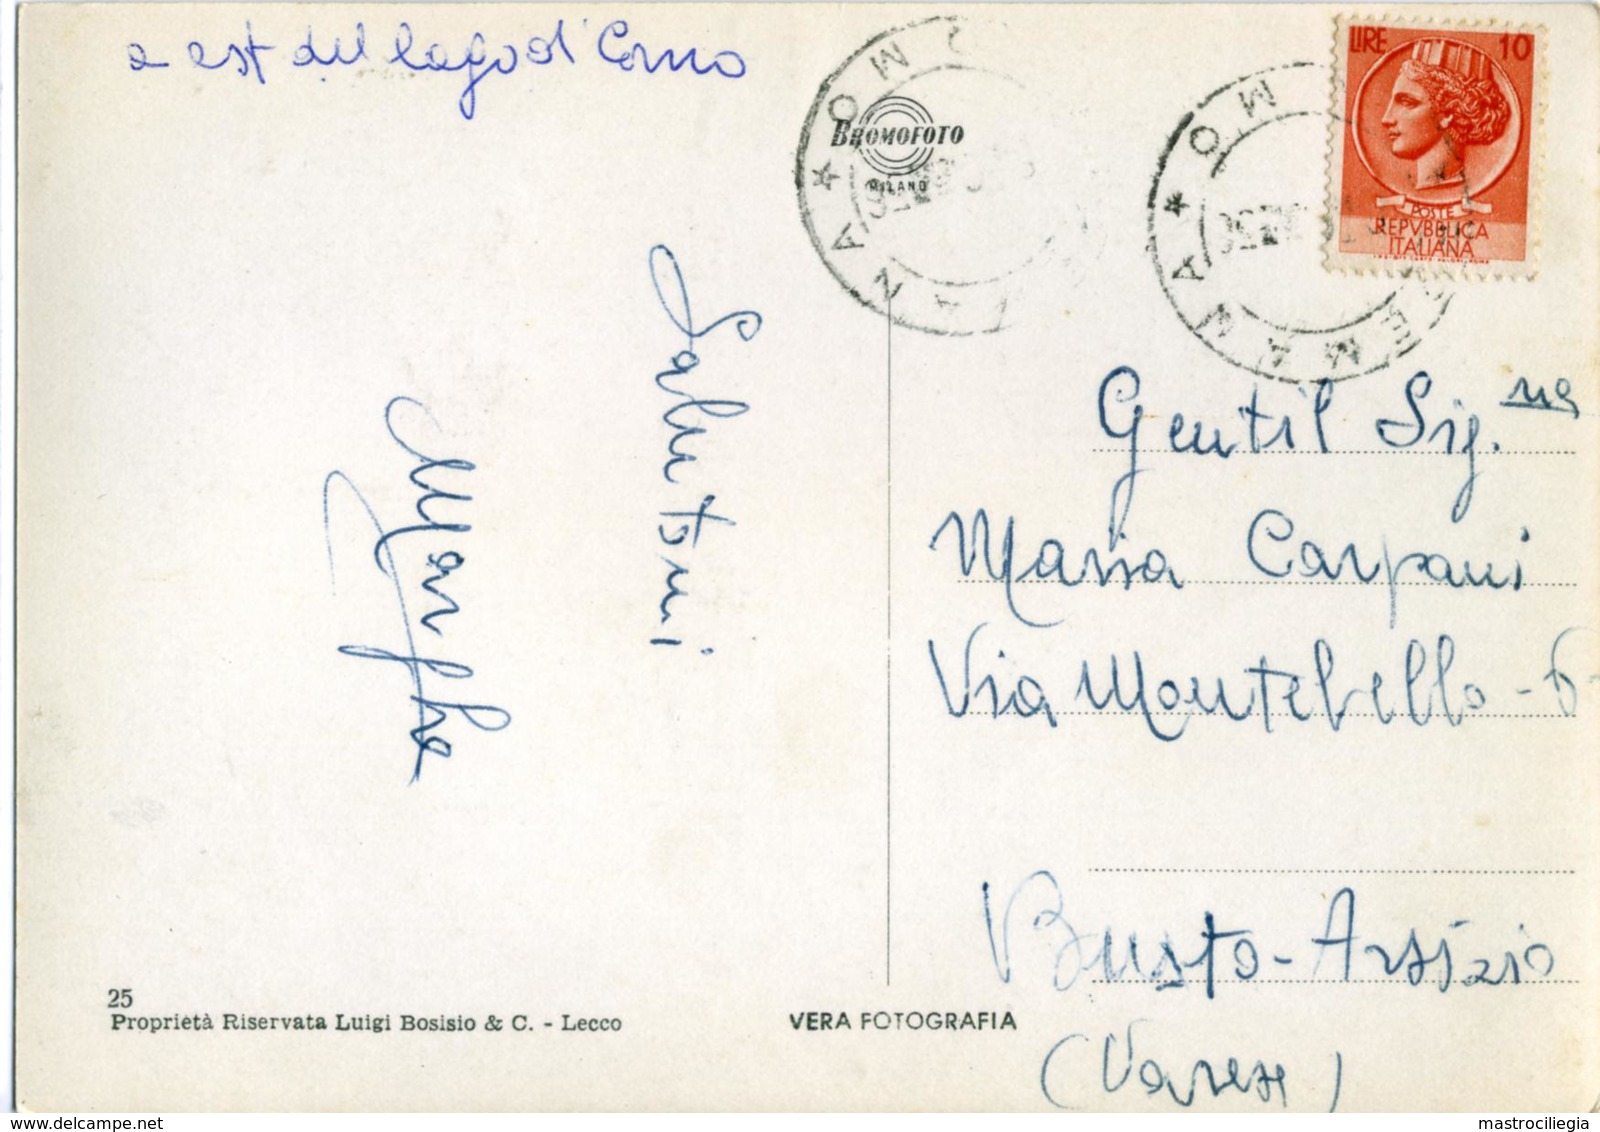 a est del lago di Como
LIRE 10
BROMOFOTO
MILANO
POSTE
REPVBBLICA
ITALIANA
Salutoni
Marghe
Gentil Sig.na
Maria Carpani
Via Montebello - 6
Busto - Arsizio
(Varese)
25
Proprietà Riservata Luigi Bosisio & C. - Lecco
VERA FOTOGRAFIA
mastrociliegia